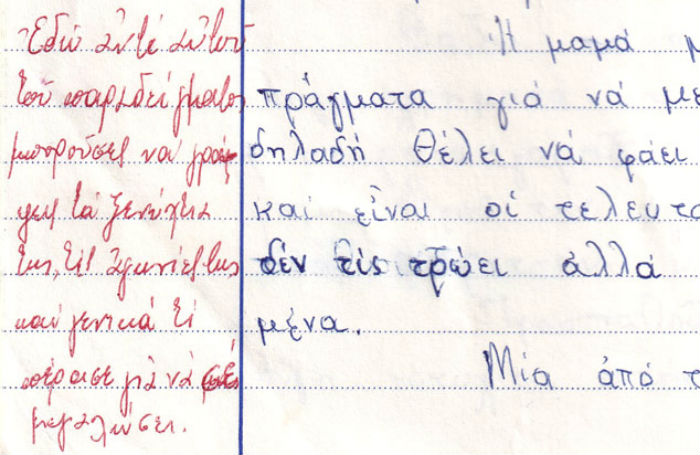 Ἐδῶ ἀντί αὐτοῦ
τοῦ παραδείγματος
μποροῦσες νά γρά-
ψεις τά ξενύχτια
της, τίς ἀγωνίες της
καί γενικά τί
πέρασε γιά νά σέ
μεγαλώσει.
Ἡ μαμά μ
πράγματα γιά νά με
δηλαδή θέλει νά φάει
καί εἶναι οἱ τελευτα
δέν τίς τρώει ἀλλά
μένα.
Μία ἀπό τ